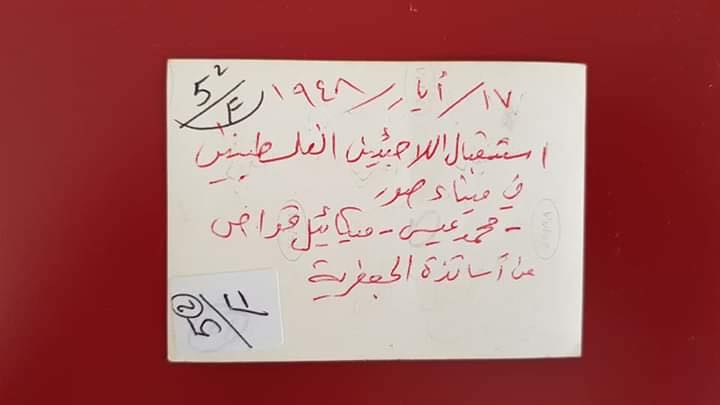 5²/F
١٧/أيار/١٩٤٨
استقبال اللاجئين الفلسطينيين
في ميناء صور
- محمد عيسى - ميكائيل قواص
من أساتذة الجعفرية
5②/F